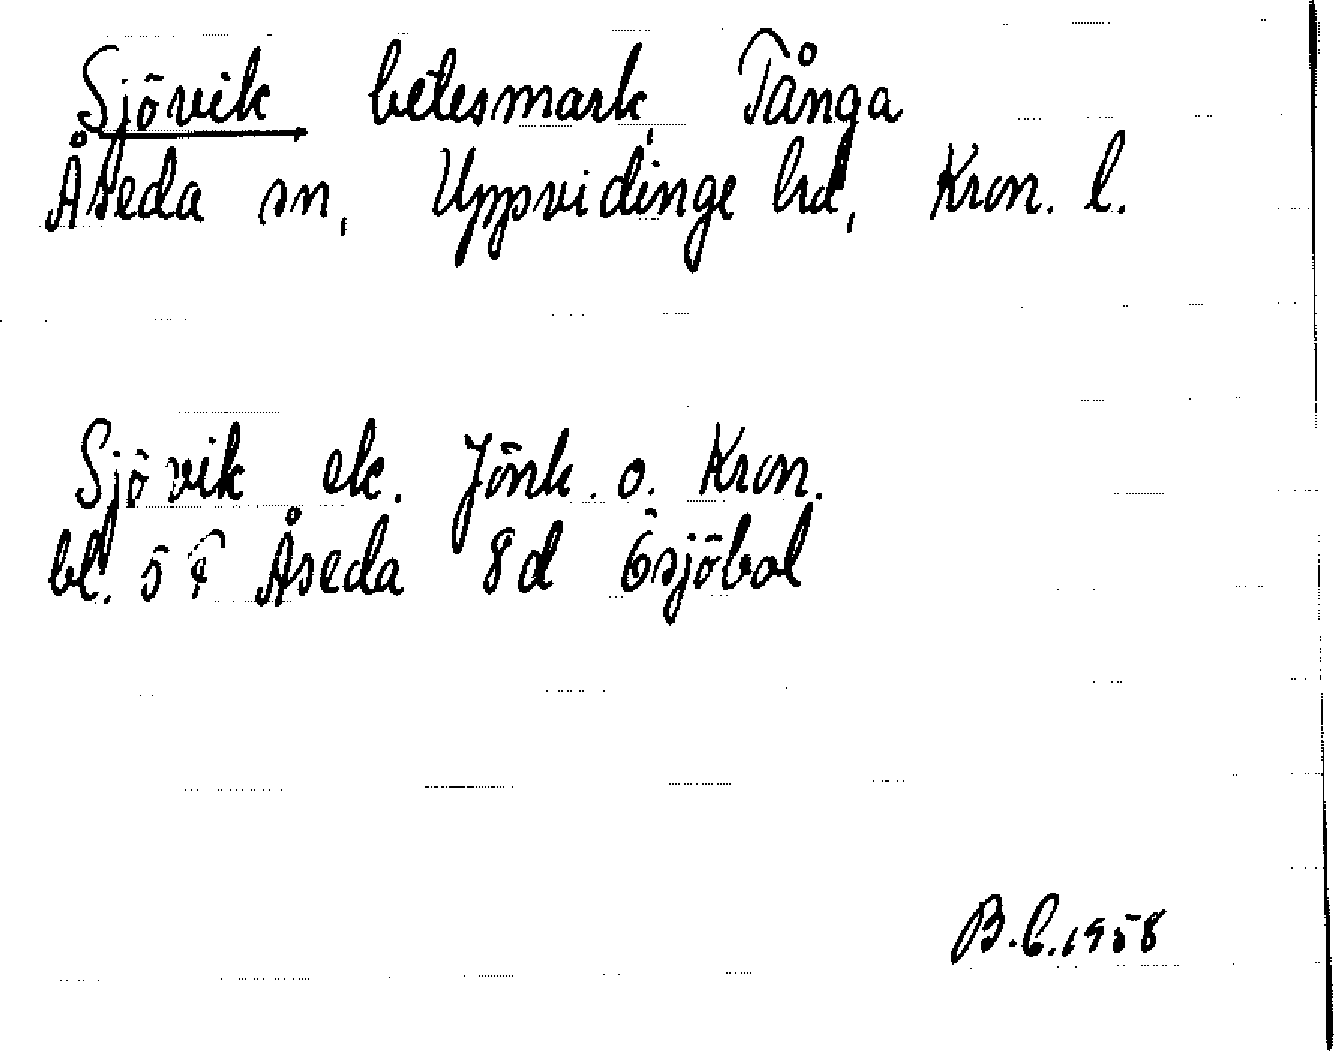 Sjövik betesmark, Tånga
Åseda sn, Uppvidinge hd, Kron. l.
Sjövik ek. Jönk. o. Kron.
bl. 5 F Åseda 8d Ösjöbol
B.C. 1958